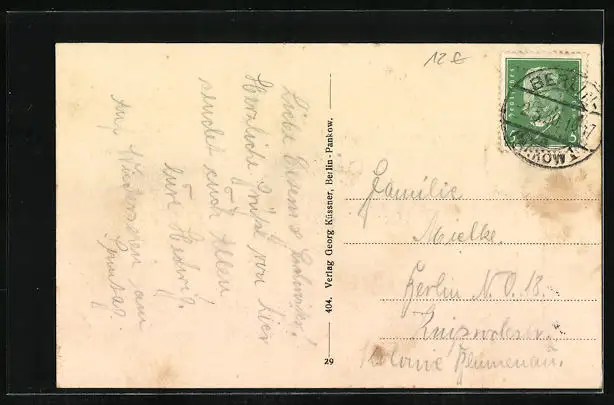 12 €
Liebe Eltern & Geschwister!
Herzliche Grüße von hier
sendet euch Allen
Eure Hedwig.
Auf Wiedersehen am
Sonntag.
404. Verlag Georg Küssner, Berlin-Pankow.
29
BERLIN
5
Familie
Mielke.
Berlin N.O. 18.
Kniprodestr.
Kolonie Blumenau.